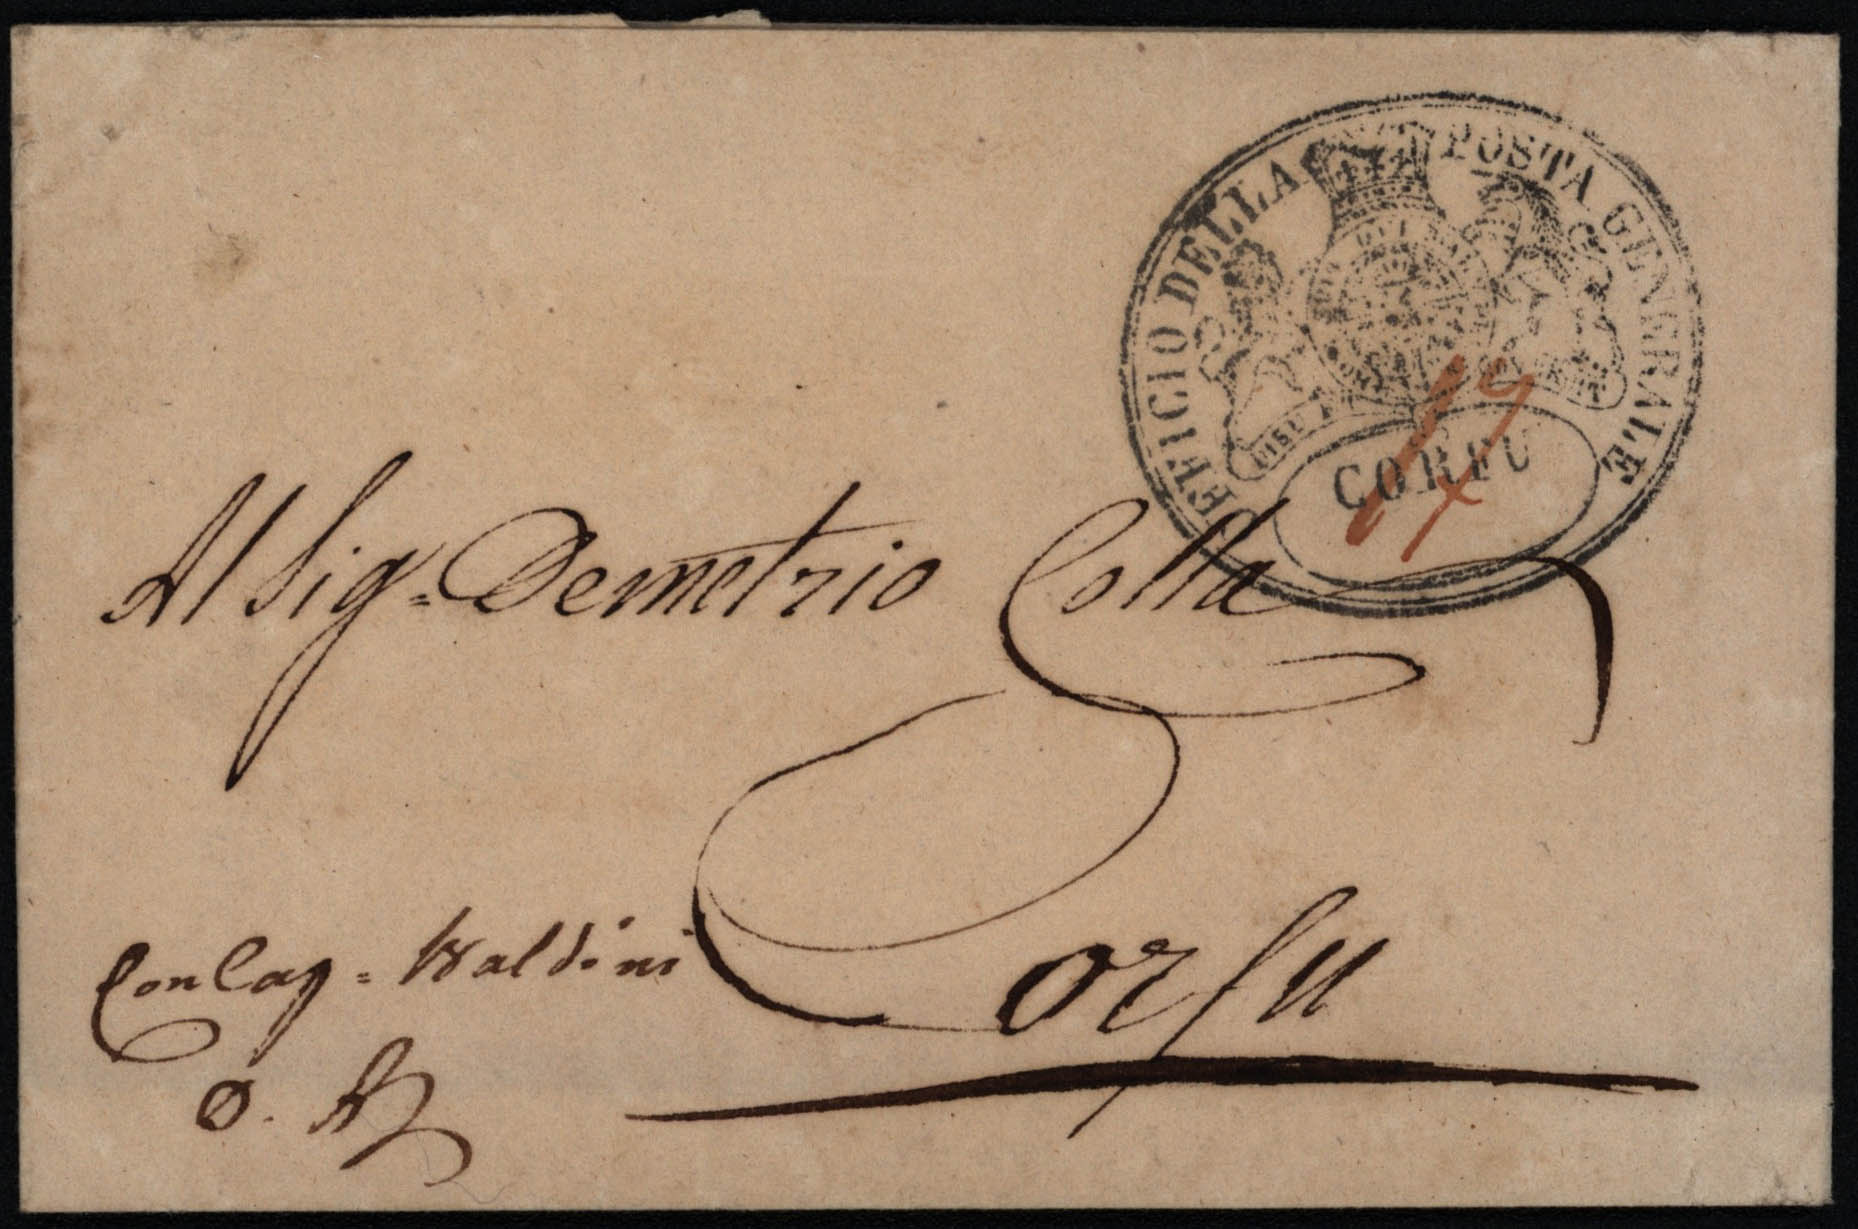 UFFICIO DELLA POSTA GENERALE
CORFU
Al Sig= Demetrio Colla
Corfu
Con Cap=